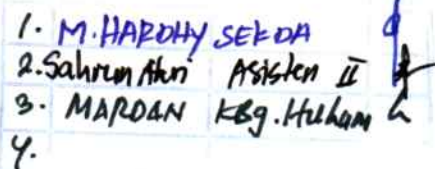 1. M. HARDHY SEKDA
2. Sahrun Asisten II
3. MARDAN KBg. Hukum
4.